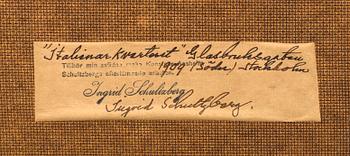 "Italienarkvarteret" Glasbruksgatan
1909 (Söder) - Stockholm
Tillhör min avlidne make Konstnären
Schultzbergs efterlämnade arbeten.
Ingrid Schultzberg
Ingrid Schultzberg.